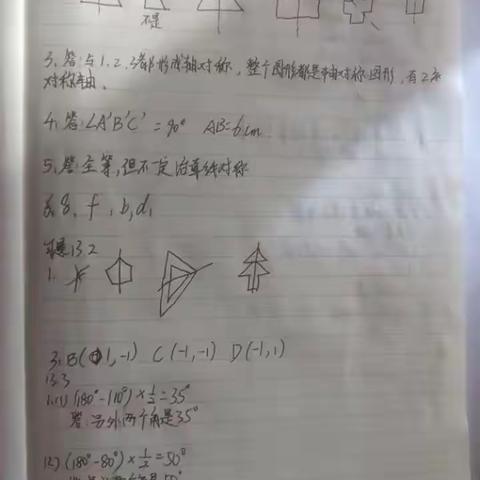 不是
3、答:与1、2、3都形成轴对称,整个图形都是轴对称图形,有2条
对称轴。
4、答:∠A'B'C'=90° AB=6cm
5、答:全等,但不一定沿直线对称
8、f、b,d,
习题13.2
1.
3、B(1,-1) C(-1,-1) D(-1,1)
13.3
1.(1)(180°-110°)×½=35°
答:另外两个角是35°
(2)(180°-80°)×½=50°